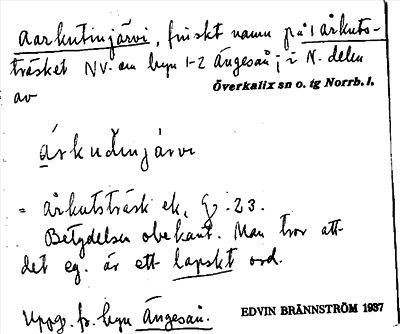 aarkutinjärvi, finskt namn på 1 årkuts-
träsket NV. om byn 1-2 Ängeså; i N. delen
av Överkalix sn o. tg Norrb. l.
árkudinjárvi
= årkutsträsk ek. G : 23.
Betydelsen obekant. Man tror att
det eg. är ett lapskt ord.
Uppg. fr. byn Ängeså.
EDVIN BRÄNNSTRÖM 1937